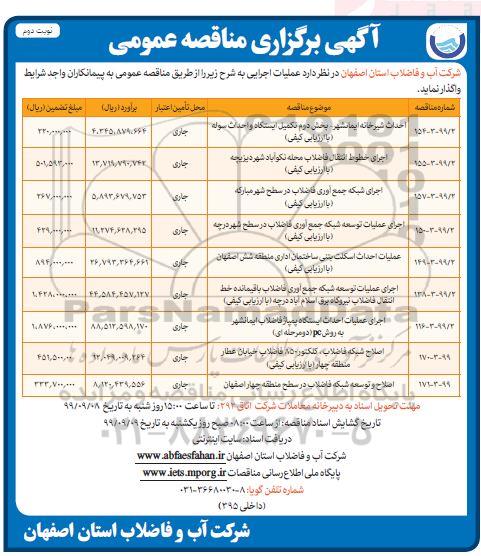 نوبت دوم
آگهی برگزاری مناقصه عمومی
شرکت آب و فاضلاب استان اصفهان در نظر دارد عملیات اجرایی به شرح زیر را از طریق مناقصه عمومی به پیمانکاران واجد شرایط
واگذار نماید.
شماره مناقصه موضوع مناقصه محل تأمین اعتبار برآورد (ریال) مبلغ تضمین (ریال)
۹۹-۳-۱۵۴/۲ احداث شیرخانه ایمانشهر- بخش دوم تکمیل ایستگاه و احداث سوله (با ارزیابی کیفی) جاری ۴,۳۴۵,۸۷۹,۶۶۴ ۲۲۰,۰۰۰,۰۰۰
۹۹-۳-۱۵۵/۲ اجرای خطوط انتقال فاضلاب محله نکوآباد شهر دیزیچه (با ارزیابی کیفی) جاری ۱۳,۷۱۹,۷۹۰,۷۴۲ ۵۰۱,۵۹۳,۰۰۰
۹۹-۳-۱۵۷/۲ اجرای شبکه جمع آوری فاضلاب در سطح شهر مبارکه (با ارزیابی کیفی) جاری ۵,۸۹۳,۶۷۹,۷۵۳ ۲۶۷,۰۰۰,۰۰۰
۹۹-۳-۱۵۰/۲ اجرای عملیات توسعه شبکه جمع آوری فاضلاب در سطح شهر درچه (با ارزیابی کیفی) جاری ۱۱,۲۷۴,۶۲۸,۲۹۵ ۴۲۹,۰۰۰,۰۰۰
۹۹-۳-۱۴۹/۲ عملیات احداث اسکلت بتنی ساختمان اداری منطقه شش اصفهان (با ارزیابی کیفی) جاری ۲۶,۷۹۳,۳۶۴,۶۶۱ ۸۹۴,۰۰۰,۰۰۰
۹۹-۳-۱۳۸/۲ اجرای عملیات توسعه شبکه جمع آوری فاضلاب باقیمانده خط انتقال فاضلاب نیروگاه برق اسلام آباد درچه (با ارزیابی کیفی) جاری ۴۴,۵۸۴,۴۵۷,۱۲۷ ۱,۴۲۸,۰۰۰,۰۰۰
۹۹-۳-۱۱۶/۲ اجرای عملیات احداث ایستگاه پمپاژ فاضلاب ایمانشهر به روش pc (دو مرحله ای) جاری ۸۸,۵۱۲,۵۹۸,۱۷۰ ۱,۸۷۶,۰۰۰,۰۰۰
۹۹-۳-۱۷۰ اصلاح شبکه فاضلاب، کلکتور ۸۵۰ فاضلاب خیابان عطار منطقه چهار (با ارزیابی کیفی) جاری ۱۲,۰۴۹,۰۰۹,۲۶۴ ۴۵۱,۵۰۰,۰۰۰
۹۹-۳-۱۷۱ اصلاح و توسعه شبکه فاضلاب در سطح منطقه چهار اصفهان جاری ۸,۱۲۰,۴۳۹,۵۵۶ ۳۳۳,۷۰۰,۰۰۰
مهلت تحویل اسناد به دبیرخانه معاملات شرکت اتاق ۳۹۲: تا ساعت ۱۵:۰۰ روز شنبه به تاریخ ۹۹/۰۹/۰۸
تاریخ گشایش اسناد مناقصه: از ساعت ۰۸:۰۰ صبح روز یکشنبه به تاریخ ۹۹/۰۹/۰۹
دریافت اسناد: سایت اینترنتی
شرکت آب و فاضلاب استان اصفهان www.abfaesfahan.ir
پایگاه ملی اطلاع رسانی مناقصات www.iets.mporg.ir
شماره تلفن گویا: ۸-۰۳۱-۳۶۶۸۰۰۳۰
(داخلی ۳۹۵)
شرکت آب و فاضلاب استان اصفهان